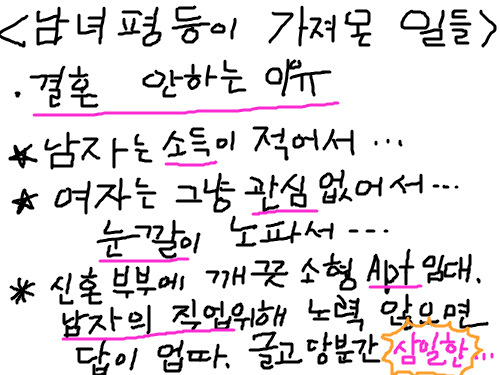 <남녀평등이 가져온 일들>
· 결혼 안하는 이유
★ 남자는 소득이 적어서 ...
★ 여자는 그냥 관심없어서...
눈깔이 노파서 ----
* 신혼부부에 깨끗 소형 Apt 임대.
남자의 직업위해 노력 않으면
답이 업따. 골고 당분간 삼일한...